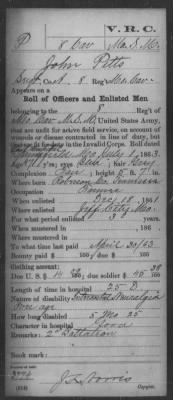 V.R.C.
P 8 Cav. Mo. S. M.
John Pitts
Co. A, 8 Reg't Mo. Cav.
Appears on a
Roll of Officers and Enlisted Men
belonging to the 8 Reg't of
Mo. Cav. M. S. M. United States Army,
that are unfit for active field service, on account of
wounds or disease contracted in line of duty, but
are fit for duty in the Invalid Corps. Roll dated
Springfield Mo. July 1, 1863.
Eyes Blue; hair Grey
Complexion Fair; height 5 ft. 7 in.
Where born
Occupation Farmer
When enlisted Dec 18 1861
Where enlisted Jeff City Mo.
For what period enlisted 3
When mustered in 186
Where mustered in
To what time paid April 30/63
Bounty paid $ 100; due $ 100
Due U. S. $ 14; due soldier $
Length of time in hospital 25 D.
Nature of disability Neuralgia
How long disabled 5 Mo 25
Character in hospital Good
Remarks: 2d Battalion
Book mark:
Copyist.